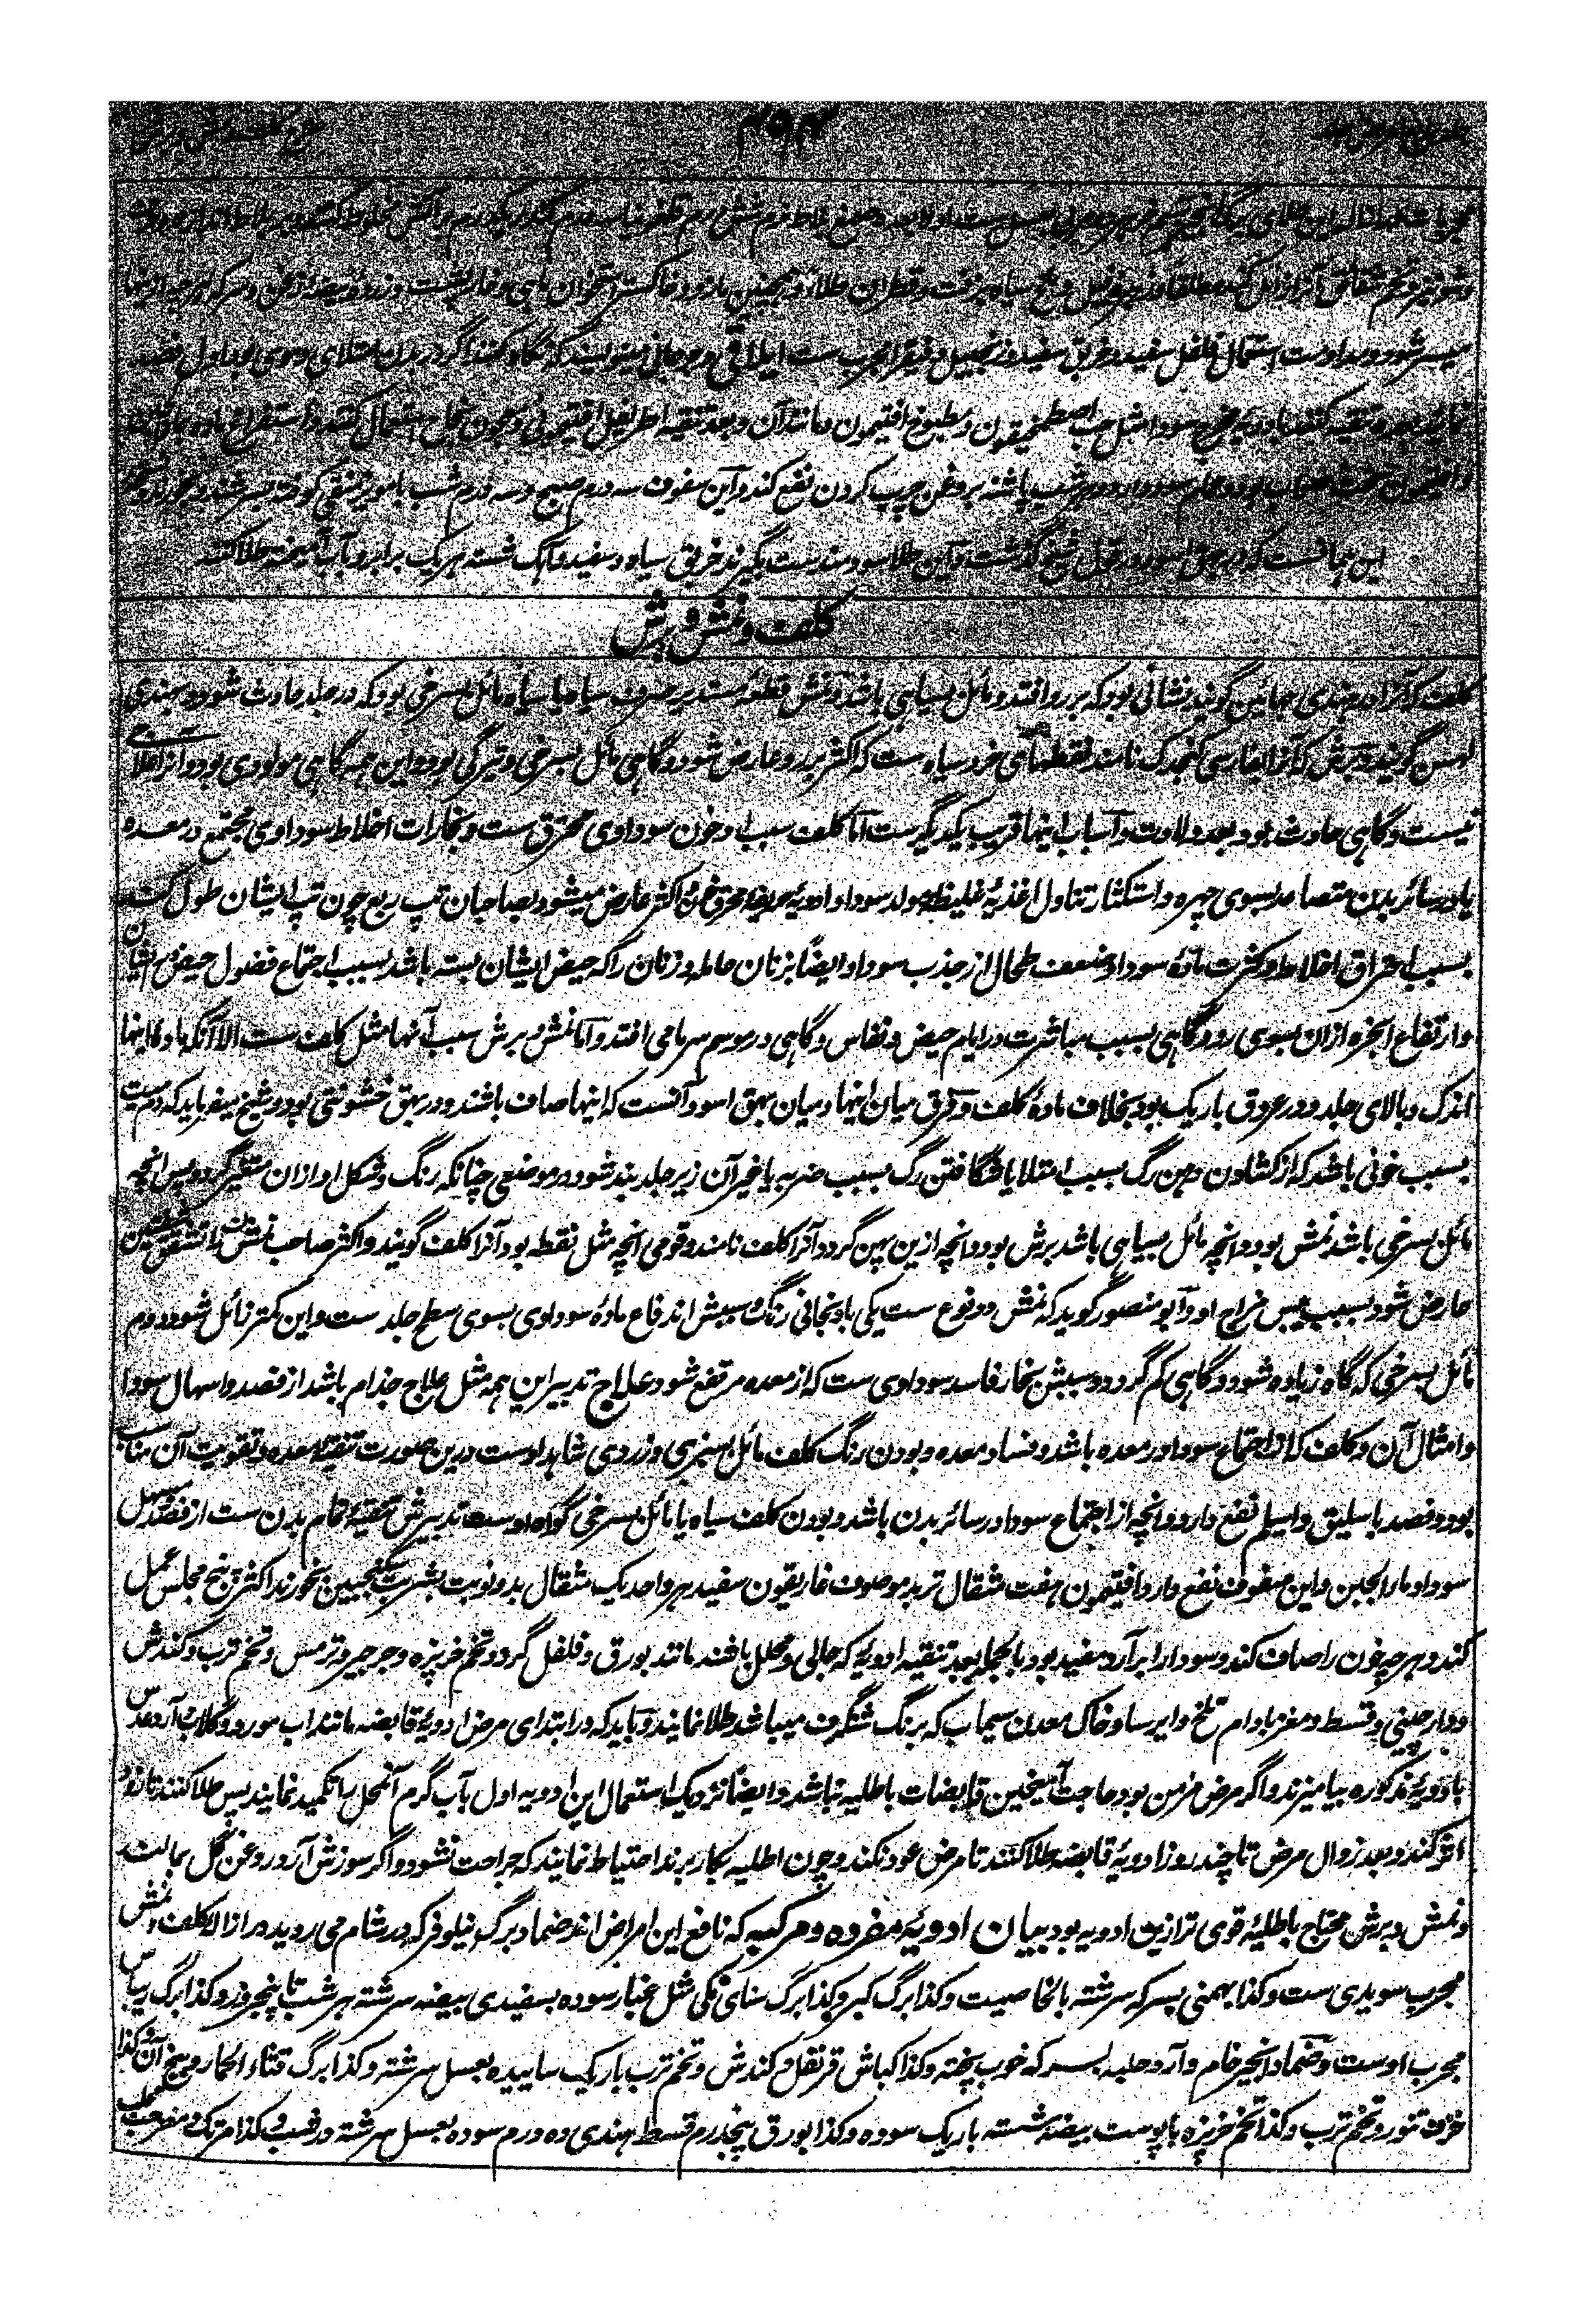 میسر شود و مداومت استعمال فلفل سفید و خربق سفید و زنجبیل و فیقرا مجرب ست ایلاقی و جرجانی مینویسند که نگاه کنند اگر در بدن امتلای دموی بود اول فصد
نمایند بعده تنقیه کنند بادویه مخرج سودا مثل حب اصطمخیقون و مطبوخ افتیمون و مانند آن و بعد تنقیه اطریفل افتیمونی و معجون نجاح استعمال کنند و استفراغ ماده
کردن نفع کند و این سفوف سه درم صبح و سه درم شب با مویز منقی کوفته بسرشند و بخورند
این همانست که در بهق اسود در قول شیخ گذشت و این طلا سودمند ست بگیرند خربق سیاه و سفید و آهک شسته هر یک برابر و بآب آمیخته طلا کنند
کلف و نمش و برش
کلف که آنرا در هندی جهائین گویند نشانی بود که بر رو افتد و مائل بسیاهی باشد و نمش قطعهٔ مستدیر صرف سیاه یا سیاه مائل بسرخی بود که در جلد حادث شود و بهندی
لهسن گویند و برش که آنرا بفارسی کنجدک نامند نقطهای خرد سیاه ست که اکثر بر رو عارض شود و گاهی مائل بسرخی و تیرگی بود و این همه گاهی مولودی بود و آنرا علاجے
نیست و گاهی حادث بود بعد ولادت و اسباب اینها قریب یکدیگر ست اما کلف سبب او خون سوداوی محترق ست و بخارات اخلاط سوداوی مجتمع در معده
یا در سائر بدن متصاعد بسوی چهره و استکثار تناول اغذیهٔ غلیظه مولد سودا و ادویهٔ حریفه محرقه خون و اکثر عارض میشود بصاحبان تپ ربع چون تپ ایشان طول کند
بسبب احتراق اخلاط و کثرت مادهٔ سودا و ضعف طحال از جذب سودا و ایضاً بزنان حامله و زنان را که حیض ایشان بسته باشد بسبب اجتماع فضول حیض در ایشان
و ارتفاع ابخره ازان بسوی رو و گاهی بسبب مباشرت در ایام حیض و نفاس و گاهی در موسم سرما می افتد و اما نمش و برش سبب آنها مثل کلف ست الا آنکه مادهٔ اینها
اندک و بالای جلد و در عروق باریک بود بخلاف مادهٔ کلف و فرق میان اینها و میان بهق اسود آنست که اینها صاف باشند و در بهق خشونتی بود و شیخ میفرماید که دم میت
بسبب خونی باشد که از کشادن دهن رگ بسبب امتلا یا شگافتن رگ بسبب ضربه یا غیر آن زیر جلد بند شود در موضعی چنانکه رنگ و شکل او ازان متغیر گردد پس انچه
مائل بسرخی باشد نمش بود و انچه مائل بسیاهی باشد برش بود و انچه ازین پهن گردد آنرا کلف نامند و قومی انچه مثل نقطه بود آنرا کلف گویند و اکثر صاحب نمش را تشقق شفتین
عارض شود بسبب یبس مزاج او و ابو منصور گوید که نمش دو نوع ست یکی بادنجانی رنگ و سببش اندفاع مادهٔ سوداوی بسوی سطح جلد ست و این کمتر زائل شود و دوم
مائل بسرخی که گاه زیاده شود و گاهی کم گردد و سببش بخار فاسد سوداوی ست که از معده مرتفع شود علاج تدبیر این همه مثل علاج جذام باشد از فصد و اسهال سودا
و امثال آن و کلف که از اجتماع سودا در معده باشد و فساد معده و بودن رنگ کلف مائل بسبزی و زردی شاهد اوست درین صورت تنقیهٔ معده و تقویت آن مناسب
بود و فصد باسلیق و اسیلم نفع دارد و انچه از اجتماع سودا در سائر بدن باشد و بودن کلف سیاه یا مائل بسرخی گواه اوست تدبیرش تنقیهٔ تمام بدن ست از فصد و مسهل
سودا و ماءالجبن و این سفوف نفع دارد افتیمون هفت مثقال تربد موصوف غاریقون سفید هر واحد یک مثقال بدو نوبت بشربت سکنجبین بخورند اکثر پنج مجلس عمل
کند و هرچه خون را صاف کند و سودا را برآرد مفید بود بالجمله بعد تنقیه ادویه که جالی و محلل باشند مانند بورق و فلفل گرد و تخم خربزه و جرجیر و ترمس و تخم ترب و کندش
و دارچینی و قسط و مغز بادام تلخ و ایرسا و خاک معدن سیماب که برنگ شنگرف میباشد طلا نمایند و باید که در ابتدای مرض ادویهٔ قابضه مانند آب مورد و گلاب و آرد عدس
بادویهٔ مذکوره بیامیزند و اگر مرض مزمن بود حاجت آمیختن قابضات باطلیه نباشد و ایضاً نزدیک استعمال این ادویه اول بآب گرم آنمحل را تکمید نمایند پس طلا کنند تا زود
اثر کند و بعد زوال مرض تا چند روز ادویهٔ قابضه طلا کنند تا مرض عود نکند و چون اطلیه بکار برند احتیاط نمایند که جراحت نشود و اگر سوزش آرد روغن گل بمالند
و نمش و برش محتاج باطلیهٔ قوی تر ازین ادویه بود بیان ادویهٔ مفرده و مرکبه که نافع این امراض اند ضماد برگ نیلوفر که در شام می روید در ازالهٔ کلف و نمش
مجرب سویدی ست و کذا بهمنی بسرکه سرشته بالخاصیت و کذا برگ کبر و کذا برگ سنای مکی مثل غبار سوده بسفیدی بیضه سرشته هر شب تا پنجروز و کذا برگ ریباس
مجرب اوست و ضماد انجیر خام و آرد حلبه بسرکه خوب پخته و کذا کباش قرنفل و کندش و تخم ترب باریک ساییده بعسل سرشته و کذا برگ قثاء الحمار و بیخ آن و کذا
خزف تنور و تخم ترب و کذا تخم خربزه با پوست بیضه شسته باریک سوده و کذا بورق پنجدرم قسط هندی ده درم سوده بعسل سرشته در شب و کذا مرتک